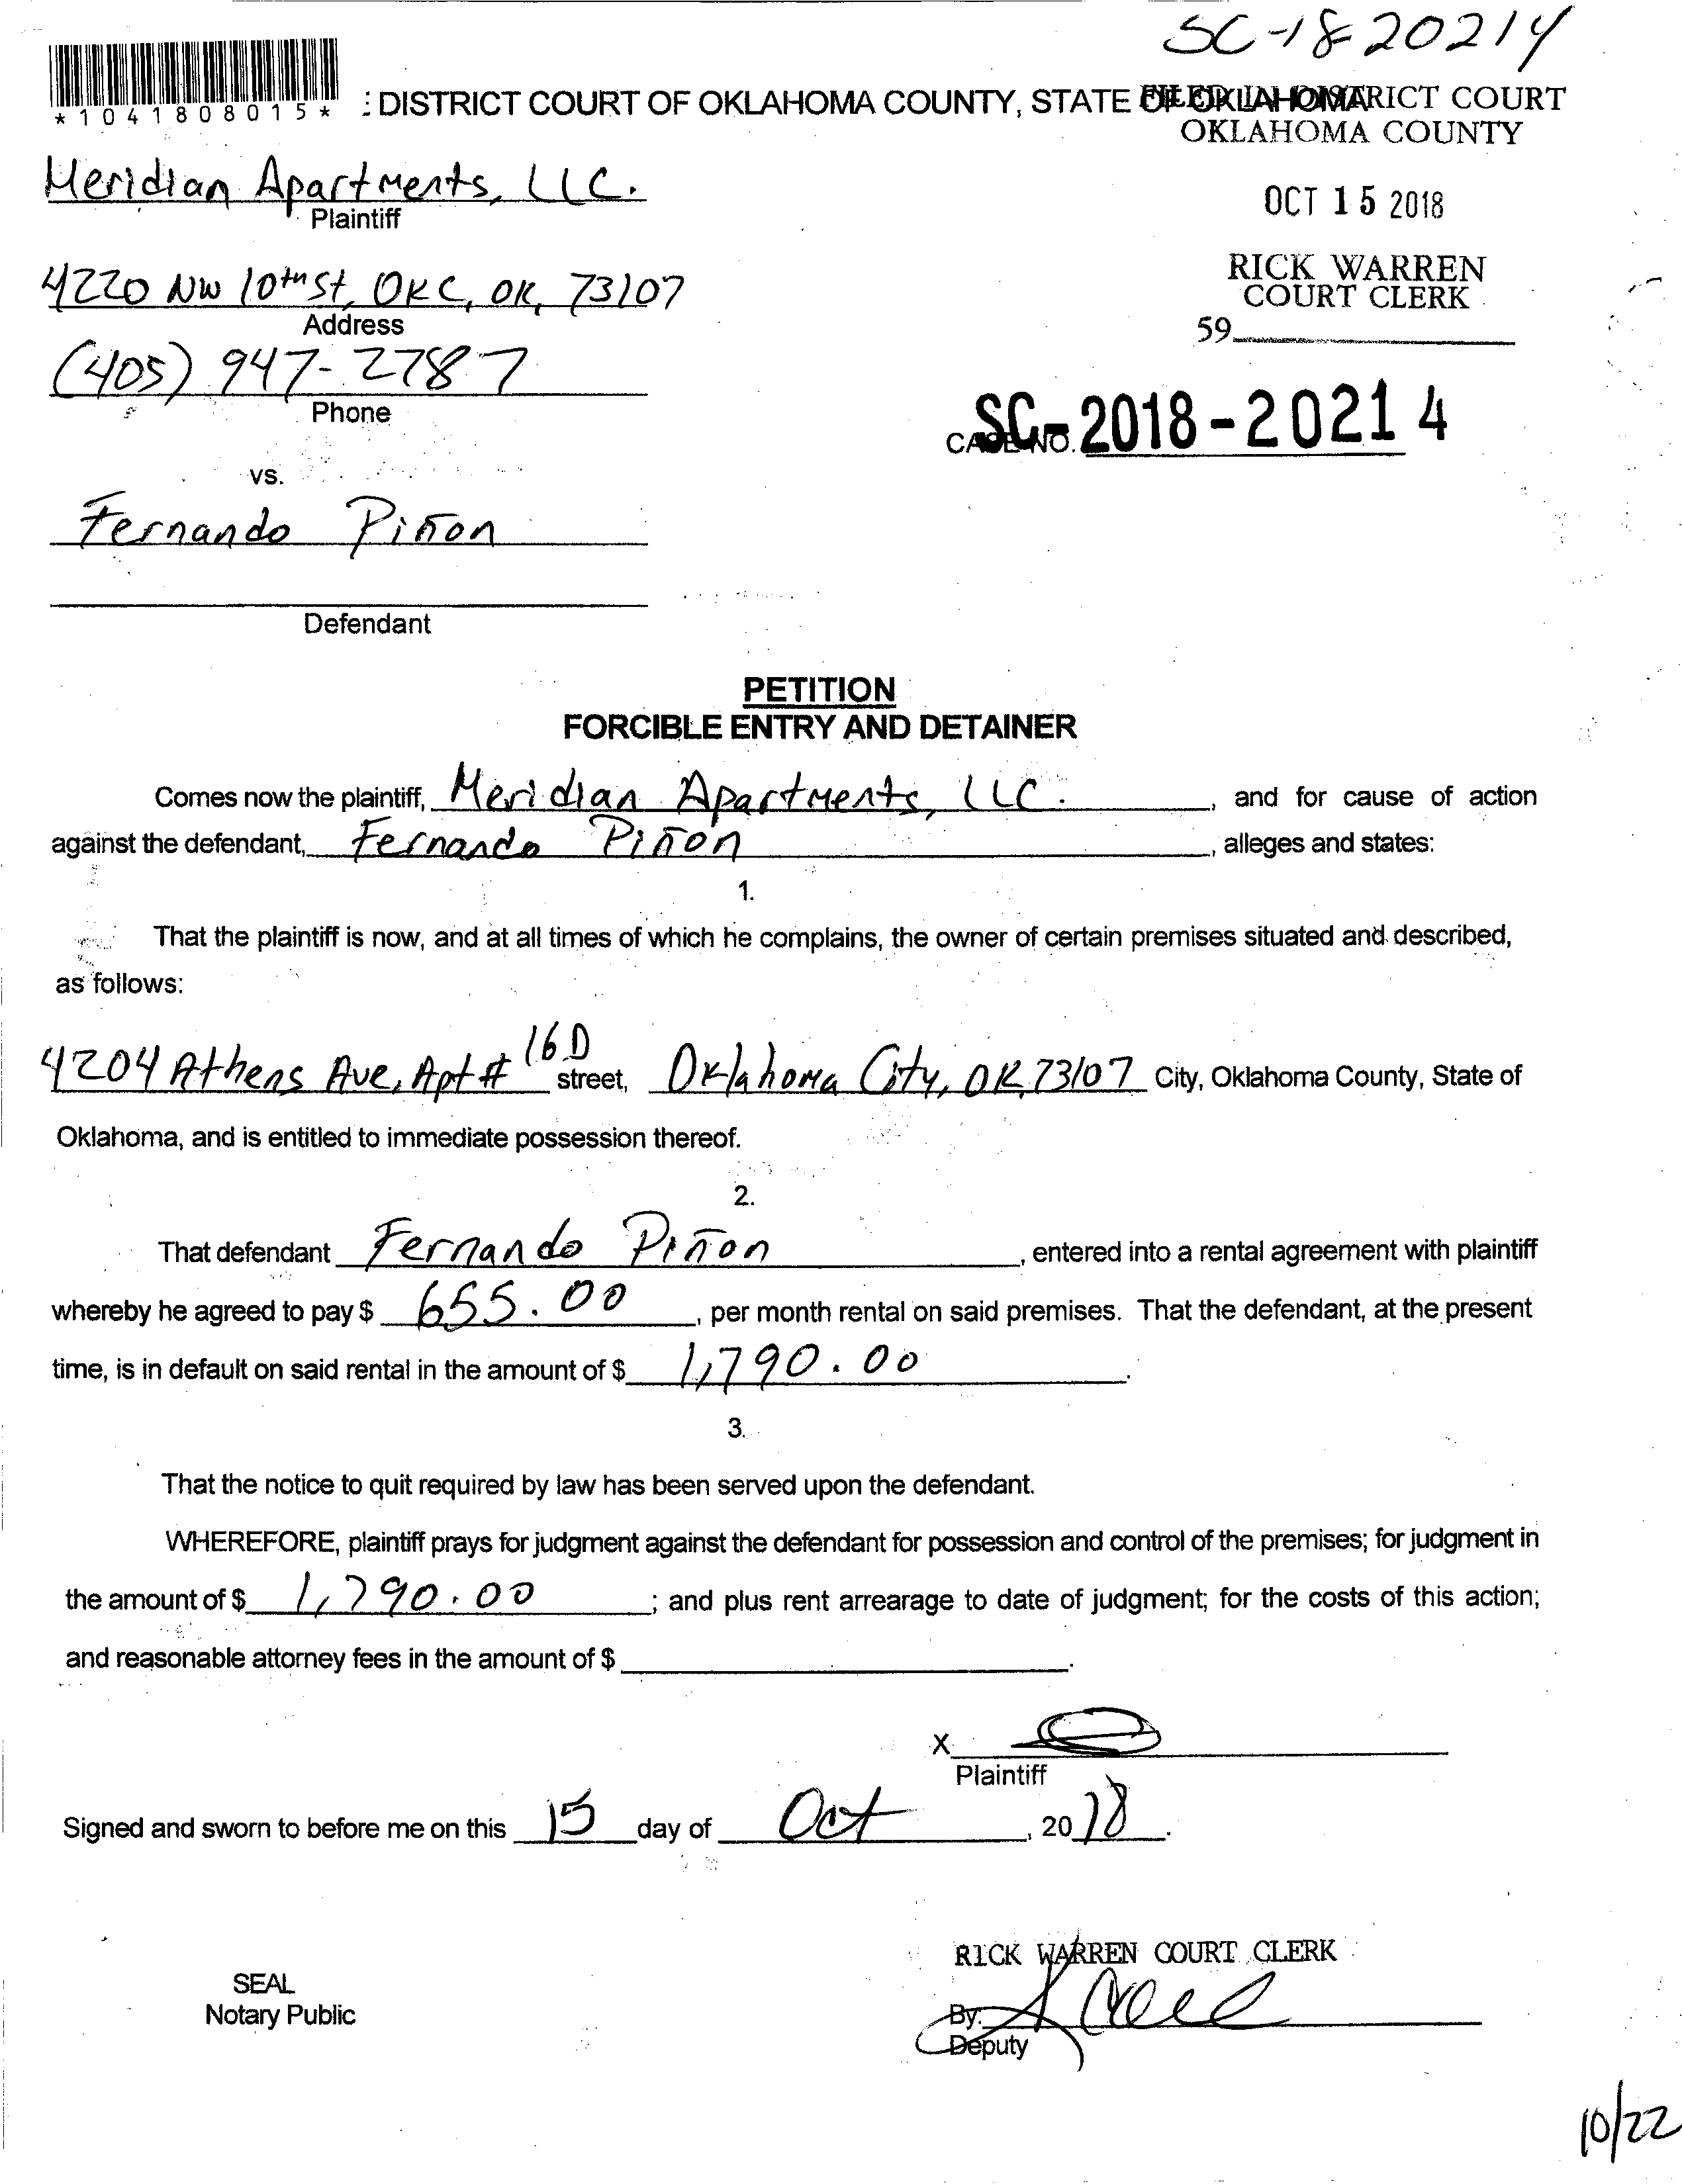 SC-18-20214
*1041808015*
: DISTRICT COURT OF OKLAHOMA COUNTY, STATE OF OKLAHOMA
FILED IN DISTRICT COURT
OKLAHOMA COUNTY
Meridian Apartments, LLC.
Plaintiff
OCT 15 2018
4220 NW 10th St, OKC, OK, 73107
Address
RICK WARREN
COURT CLERK
59
(405) 947-2787
Phone
CASE NO. SC-2018-20214
vs.
Fernando Piñon
Defendant
PETITION
FORCIBLE ENTRY AND DETAINER
Comes now the plaintiff, Meridian Apartments, LLC. , and for cause of action
against the defendant, Fernando Piñon , alleges and states:
1.
That the plaintiff is now, and at all times of which he complains, the owner of certain premises situated and described,
as follows:
4204 Athens Ave, Apt # 16D street, Oklahoma City, OK 73107 City, Oklahoma County, State of
Oklahoma, and is entitled to immediate possession thereof.
2.
That defendant Fernando Piñon , entered into a rental agreement with plaintiff
whereby he agreed to pay $ 655.00 , per month rental on said premises. That the defendant, at the present
time, is in default on said rental in the amount of $ 1,790.00 .
3.
That the notice to quit required by law has been served upon the defendant.
WHEREFORE, plaintiff prays for judgment against the defendant for possession and control of the premises; for judgment in
the amount of $ 1,790.00 ; and plus rent arrearage to date of judgment; for the costs of this action;
and reasonable attorney fees in the amount of $ .
X
Plaintiff
Signed and sworn to before me on this 15 day of Oct , 2018 .
RICK WARREN COURT CLERK
SEAL
Notary Public
By:
Deputy
10/22